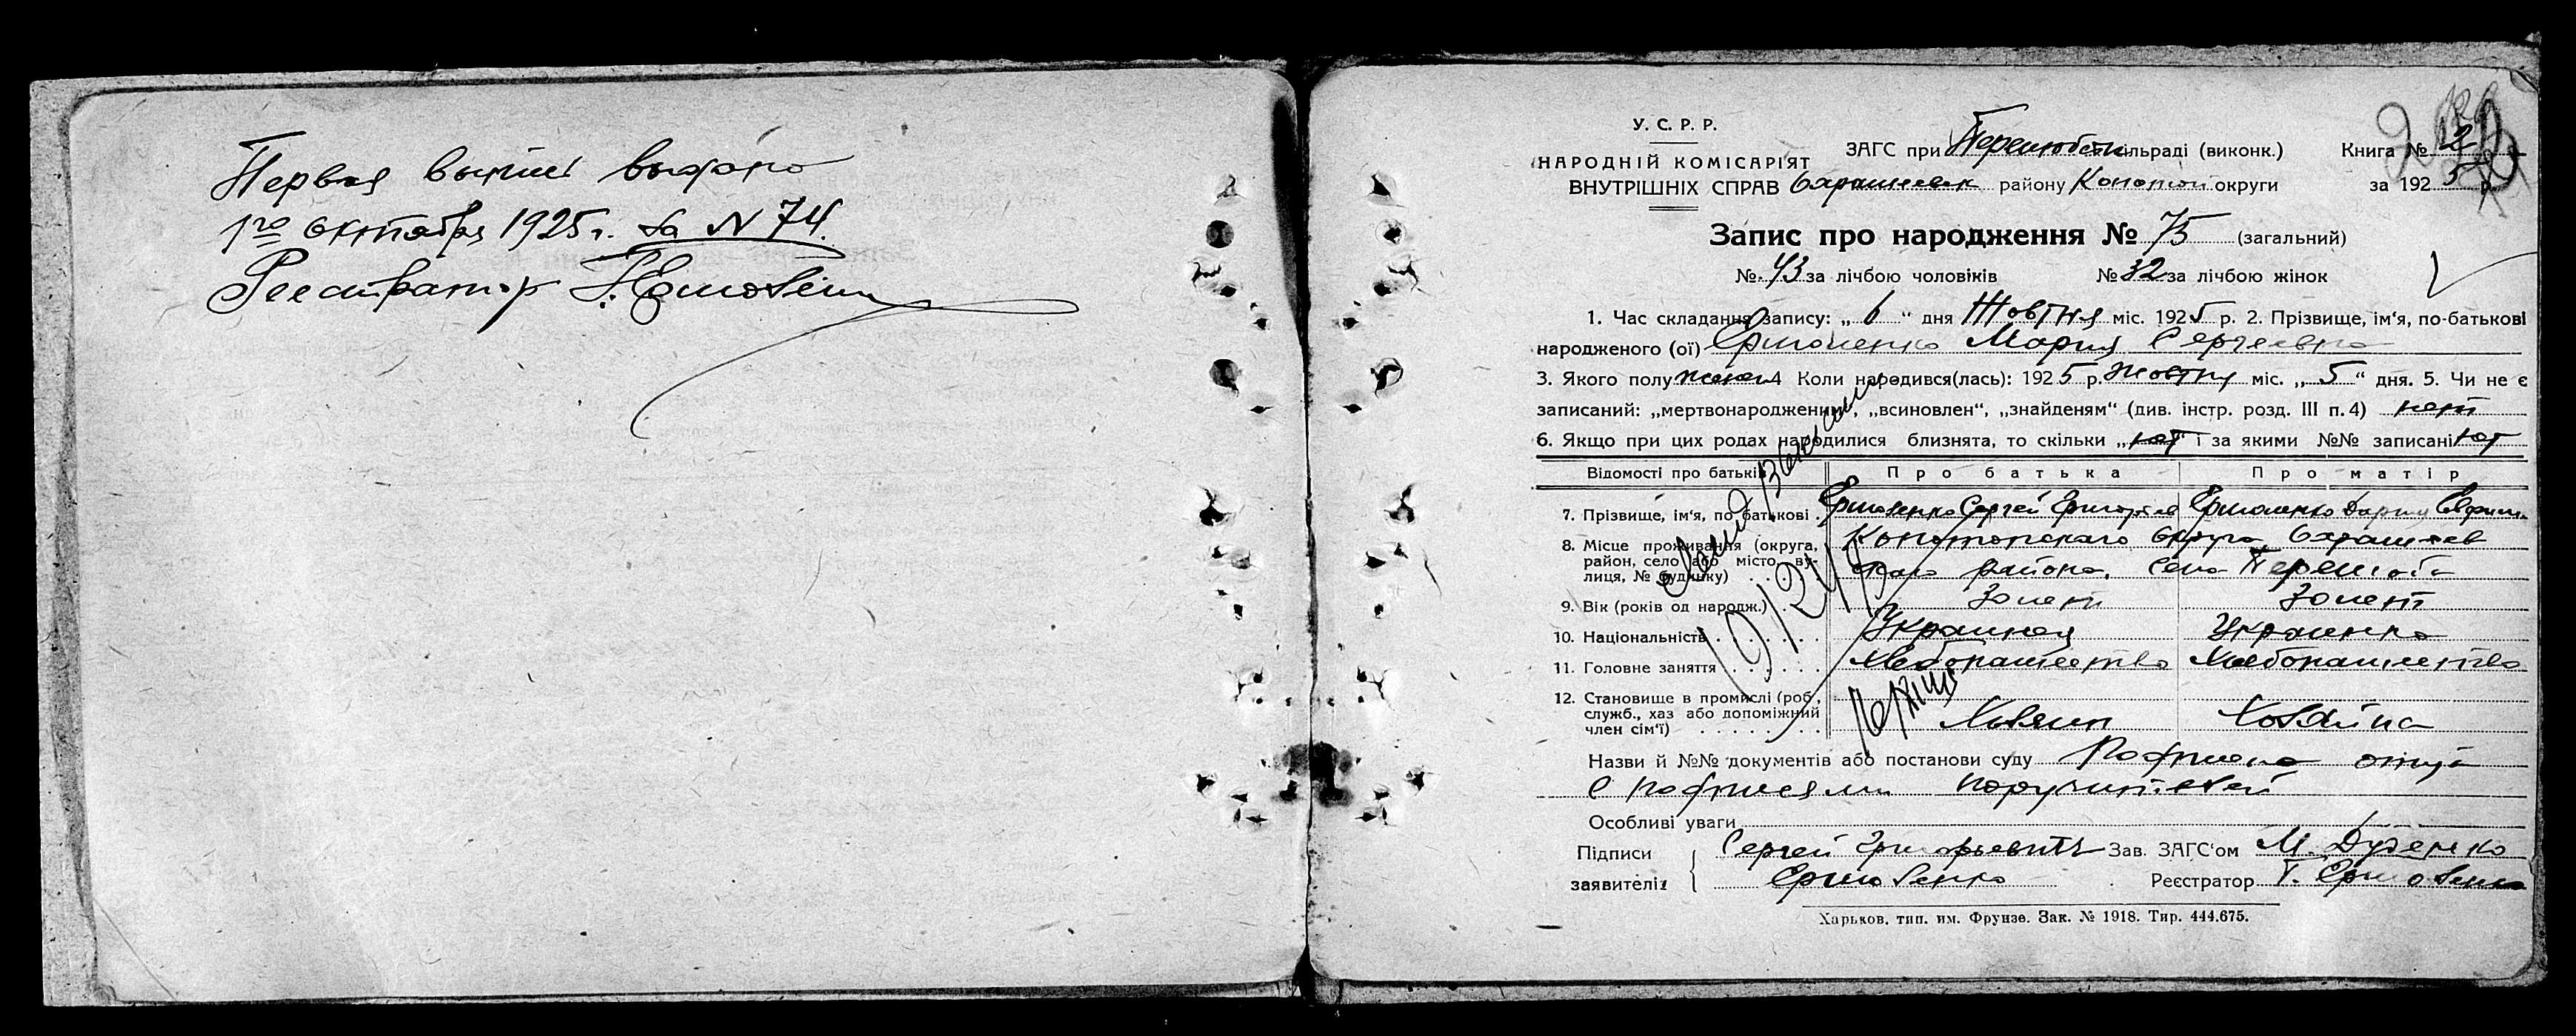 Первая выпись выдана
1го октября 1925 г. за N 74.
Реестратор Т. Ермоленко
У. С. Р. Р.
НАРОДНІЙ КОМІСАРІЯТ
ВНУТРІШНІХ СПРАВ
ЗАГС при сільраді (виконк.)
району Конотоп округи
Книга № 2
за 192 5 р.
Запис про народження № 75 (загальний)
№ 43 за лічбою чоловіків № 32 за лічбою жінок
1. Час складання запису: „ 6 “ дня Жовтня міс. 192 5 р. 2. Прізвище, ім'я, по-батькові
народженого (ої) Ермоленко Мария Сергеевна
3. Якого полу жен 4 Коли народився(лась): 192 5 р. Жовтня міс. „ 5 “ дня. 5. Чи не є
записаний: „мертвонародженим“, „всиновлен“, „знайденям“ (див. інстр. розд. III п. 4) нет
6. Якщо при цих родах народилися близнята, то скільки „ нет “ і за якими №№ записані нет
Відомості про батьків Про батька Про матір
7. Прізвище, ім'я, по батькові . Ермоленко Сергей Григорьев Ермоленко Дария
8. Місце проживання (округа, район, село або місто, вулиця, № будинку) Конотопскаго Округа, района, Села
9. Вік (років од народж.) . 30 лет 30 лет
10. Національність . . . . . Украинец Украинка
11. Головне заняття . . . . . Хлебопашество Хлебопашество
12. Становище в промислі (роб., служб., хаз або допоміжний член сім'ї) . . . . . Хозяин Хозяйка
Назви й №№ документів або постанови суду Подписка отца
с подписями поручителей
Особливі уваги
Підписи заявителів: Сергей Григорьевич Ермоленко
Зав. ЗАГС'ом М.
Реєстратор Т. Ермоленко
Харьков, тип. им. Фрунзе. Зак. № 1918. Тир. 444.675.